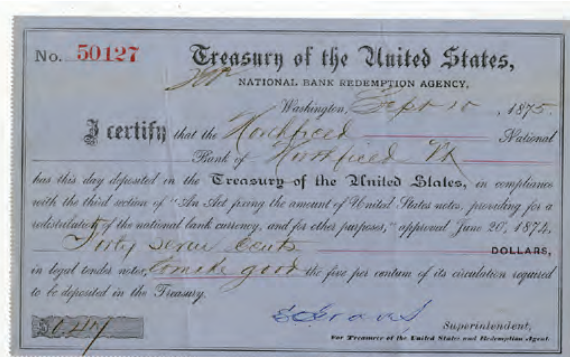 No. 50127
Treasury of the United States,
NATIONAL BANK REDEMPTION AGENCY,
Washington, Sept 10, 1875.
I certify that the Northfield National
Bank of Northfield Vt
has this day deposited in the Treasury of the United States, in compliance
with the third section of "An Act fixing the amount of United States notes, providing for a
redistribution of the national bank currency, and for other purposes," approved June 20, 1874,
Forty seven cents DOLLARS,
in legal tender notes, to make good the five per centum of its circulation required
to be deposited in the Treasury.
$0.47
Superintendent,
For Treasurer of the United States and Redemption Agent.